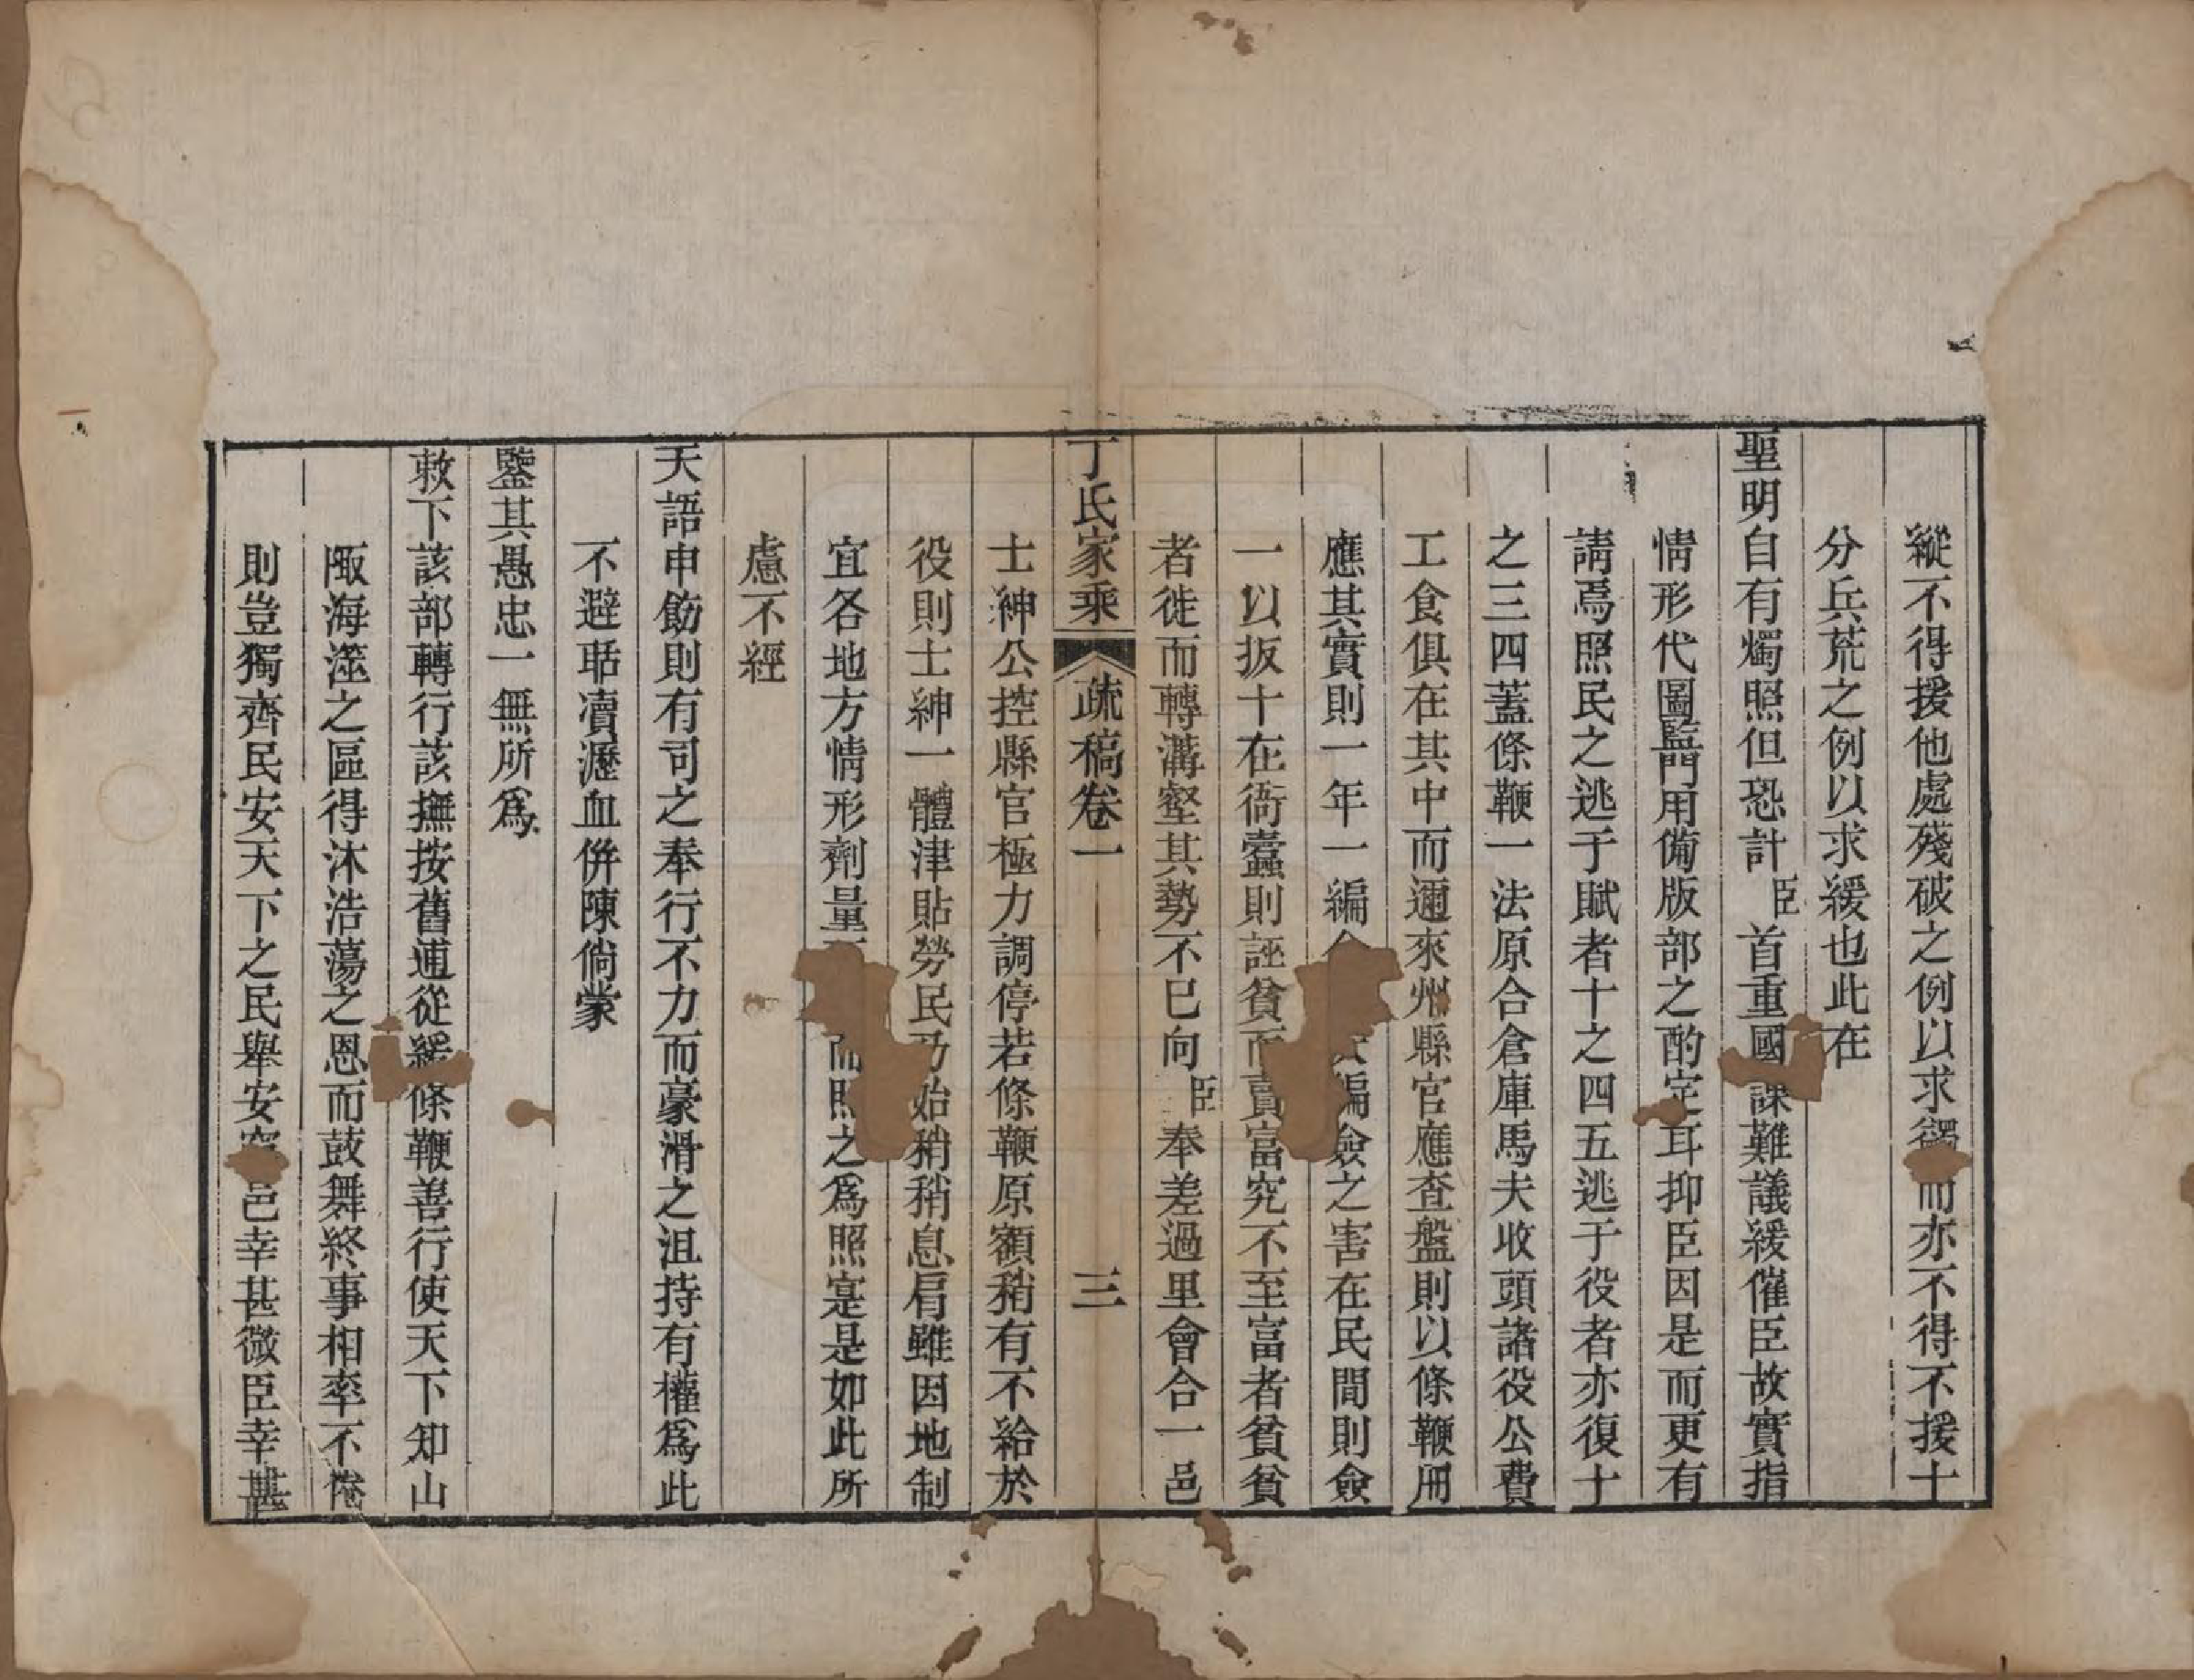 縱不得援他處殘破之例以求蠲而亦不得不援十
分兵荒之例以求緩也此在
聖明自有燭照但恐計臣首重國課難議緩催臣故實指
情形代圖監門用備版部之酌定耳抑臣因是而更有
請焉照民之逃于賦者十之四五逃于役者亦復十
之三四蓋條鞭一法原合倉庫馬夫收頭諸役公費
工食俱在其中而邇來州縣官應查盤則以條鞭冊
應其實則一年一編僉編僉之害在民間則僉
一以扳十在衙蠹則誣貧而賣富究不至富者貧貧
者徙而轉溝壑其勢不已向臣奉差過里會合一邑
丁氏家乘 疏稿卷一 三
士紳公控縣官極力調停若條鞭原額稍有不給於
役則士紳一體津貼勞民乃始稍稍息肩雖因地制
宜各地方情形劑量而照之為照寔是如此所
慮不經
天語申飭則有司之奉行不力而豪滑之沮持有權為此
不避聒瀆瀝血併陳倘蒙
鑒其愚忠一無所為
敕下該部轉行該撫按舊逋從緩條鞭善行使天下知山
陬海澨之區得沐浩蕩之恩而鼓舞終事相率不倦
則豈獨齊民安天下之民舉安窮邑幸甚微臣幸甚